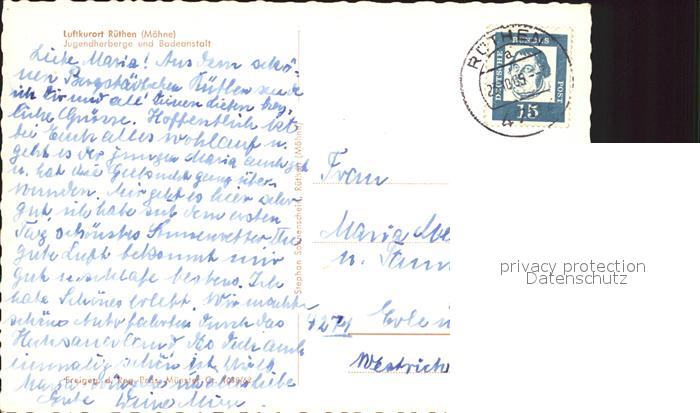 Luftkurort Rüthen (Möhne)
Jugendherberge und Badeanstalt
Liebe Maria! Aus dem schö-
nen Bergstädtchen Rüthen sende
ich Dir und all' Deinen Lieben herz-
liche Grüsse. Hoffentlich ist
bei Euch alles wohlauf u.
geht es der jungen Maria auch gut
u. hat die
wunden. Mir geht es hier sehr
gut, ich habe seit dem ersten
Tag schönstes Sonnenwetter. Die
gute Luft bekommt mir
gut u. schlafe bestens. Ich
habe Schönes erlebt. Wir machten
schöne Autofahrten durch das
Hochsauerland das doch auch
einmalig schön ist.
liebe
Gute Deine
Stephan Sonnenschein, Rüthen (Möhne)
DEUTSCHE BUNDESPOST
15
RÜTHEN
a
Frau
Maria
u. Fam
privacy protection
Datenschutz
Westrich